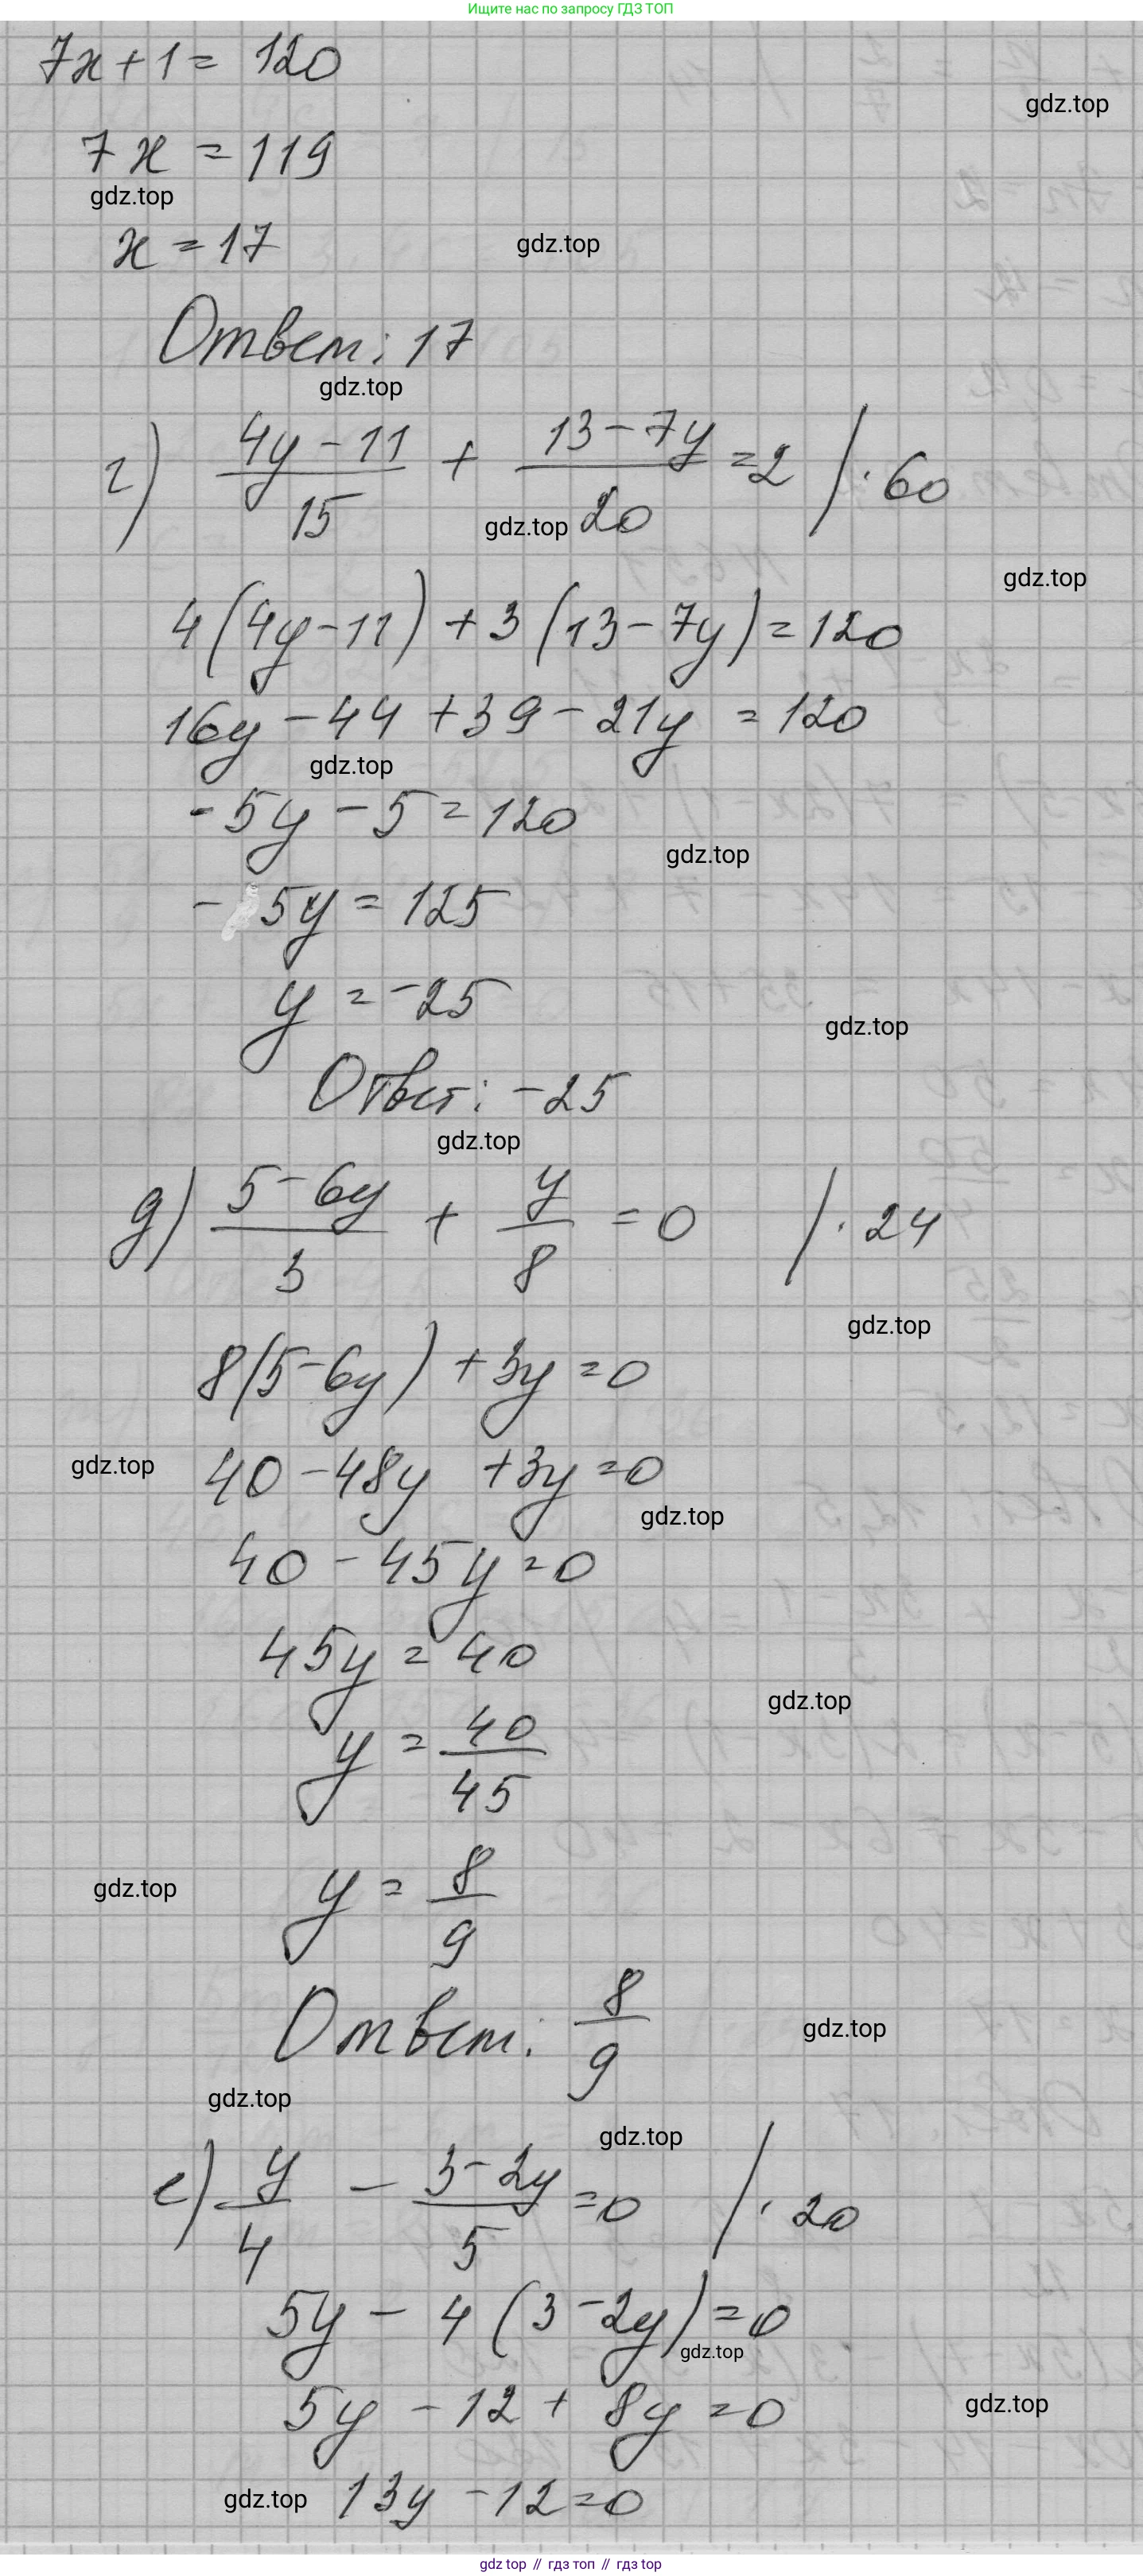 Ищите нас по запросу ГДЗ ТОП
7x + 1 = 120
gdz.top
7x = 119
gdz.top
x = 17
gdz.top
Ответ: 17
gdz.top
г) (4y - 11)/15 + (13 - 7y)/20 = 2 / · 60
gdz.top
gdz.top
4(4y - 11) + 3(13 - 7y) = 120
16y - 44 + 39 - 21y = 120
gdz.top
-5y - 5 = 120
gdz.top
-5y = 125
y = -25
gdz.top
Ответ: -25
gdz.top
д) (5 - 6y)/3 + y/8 = 0 / · 24
gdz.top
8(5 - 6y) + 3y = 0
gdz.top
40 - 48y + 3y = 0
gdz.top
40 - 45y = 0
45y = 40
gdz.top
y = 40/45
gdz.top
y = 8/9
Ответ: 8/9
gdz.top
gdz.top
gdz.top
е) y/4 - (3 - 2y)/5 = 0 / · 20
5y - 4(3 - 2y) = 0
gdz.top
5y - 12 + 8y = 0
gdz.top
gdz.top
13y - 12 = 0
gdz top // гдз топ // гдз top